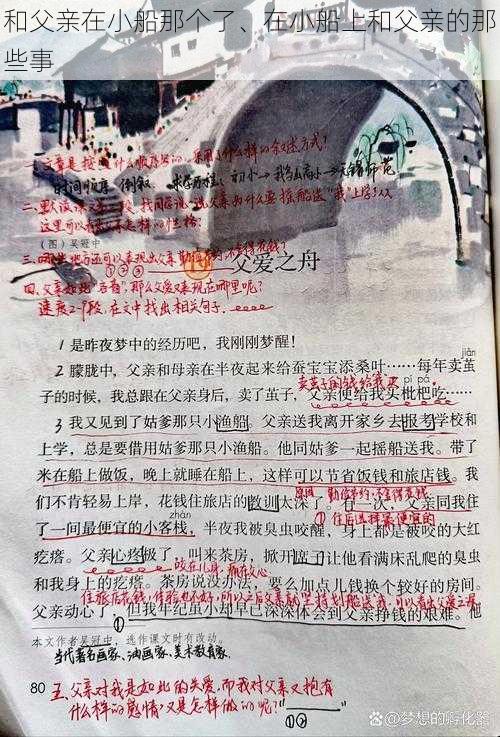 和父亲在小船那个了、在小船上和父亲的那
些事
时间顺序 倒叙
(图)吴冠中
父爱之舟
四、父爱如此"吝啬",那么父爱又表现在哪里呢?
速读2-9段,在文中找出相关句子.
1 是昨夜梦中的经历吧,我刚刚梦醒!
jiǎn
2 朦胧中,父亲和母亲在半夜起来给蚕宝宝添桑叶……每年卖茧
卖茧子的钱给我买 pí pá
子的时候,我总跟在父亲身后,卖了茧子,父亲便给我买枇杷吃……
3 我又见到了姑爹那只小渔船。父亲送我离开家乡去报考学校和
上学,总是要借用姑爹那只小渔船。他同姑爹一起摇船送我。带了
米在船上做饭,晚上就睡在船上,这样可以节省饭钱和旅店钱。我
们不肯轻易上岸,花钱住旅店的教训太深了。有一次,父亲同我住
zhàn
①住店选择最便宜的
了一间最便宜的小客栈,半夜我被臭虫咬醒,身上都是被咬的大红
疙瘩。父亲心疼极了,叫来茶房,掀开席子让他看满床乱爬的臭虫
和我身上的疙瘩。茶房说没办法,要么加点儿钱换个较好的房间。
父亲动心了,但我年纪虽小却早已深深体会到父亲挣钱的艰难。他
①
本文作者吴冠中,选作课文时有改动。
当代著名画家、油画家、美术教育家.
80 五、父亲对我是如此的关爱,而我对父亲又抱有
什么样的感情,又是怎样做的呢?
①②
百家号@梦想的孵化器